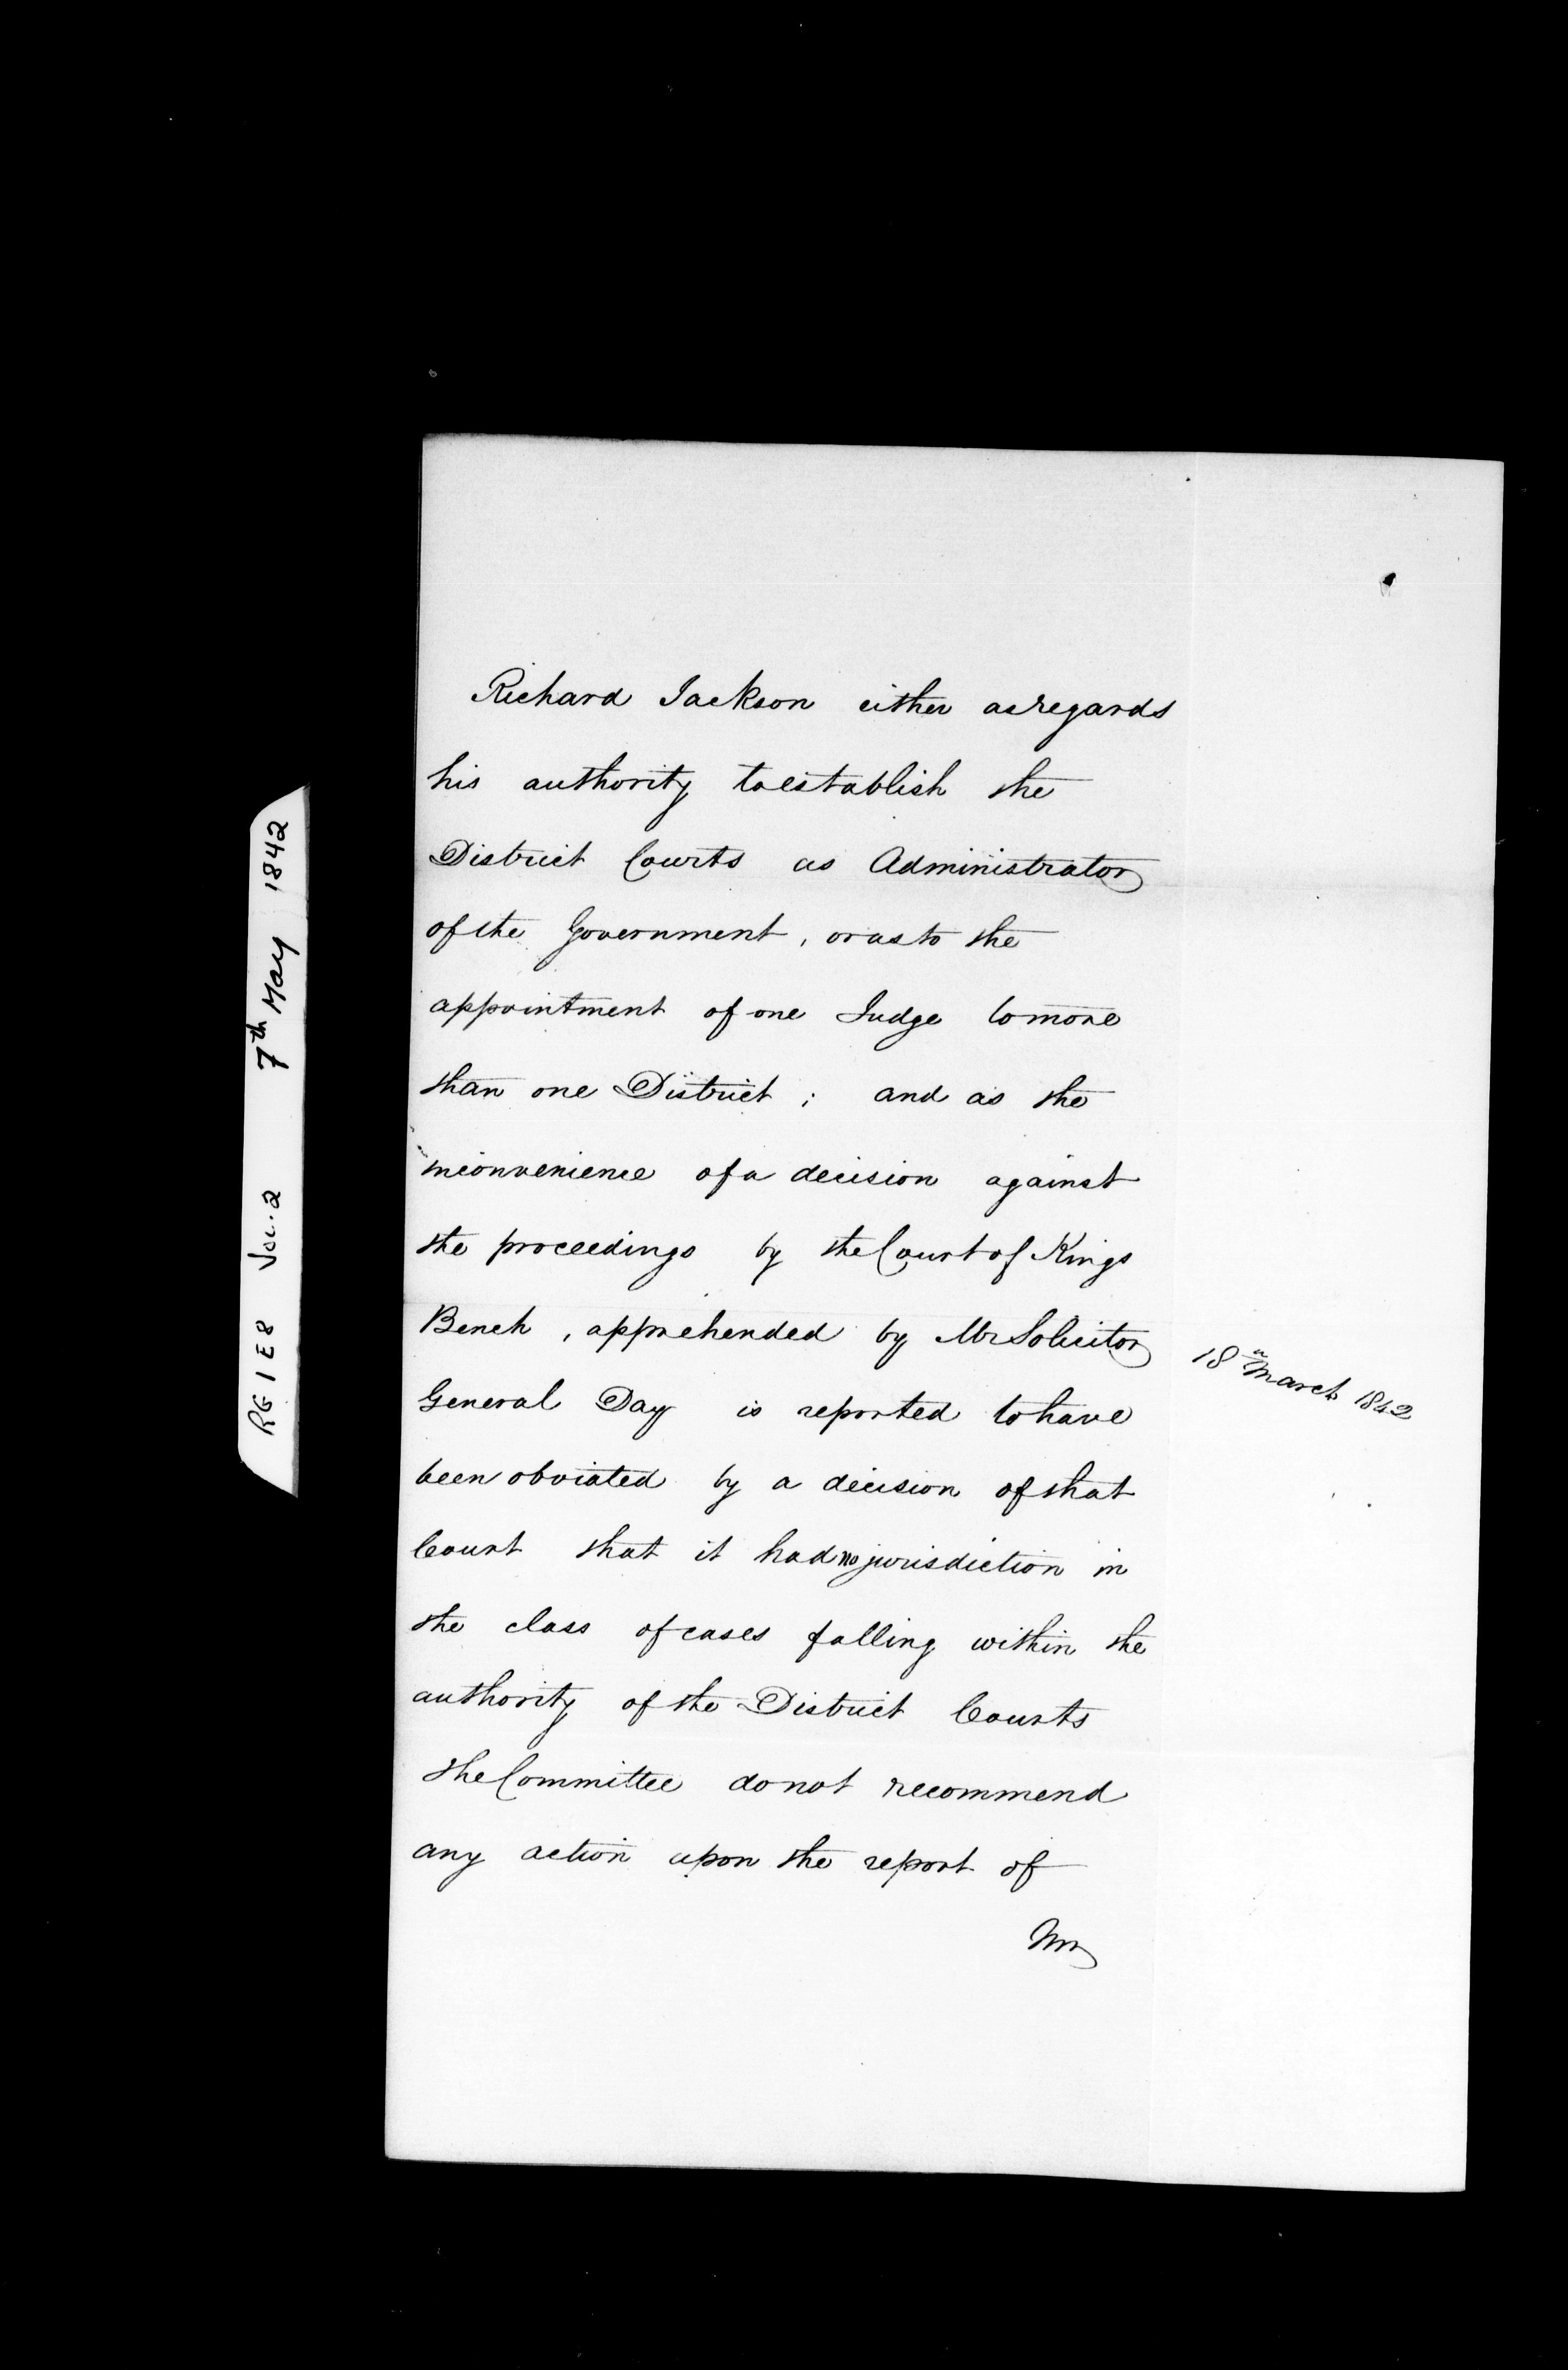 Richard Jackson either as regards
his authority to establish the
District Courts as Administrator
of the Government, or as to the
appointment of one Judge to more
than one District; and as the
inconvenience of a decision against
the proceedings by the Court of Kings
Bench, apprehended by Mr Solicitor
General Day is reported to have
been obviated by a decision of that
Court that it had no jurisdiction in
the class of cases falling within the
authority of the District Courts
the Committee do not recommend
any action upon the report of
Mr
18th March 1842
RG 1 E 8 Vol. 2 7th May 1842